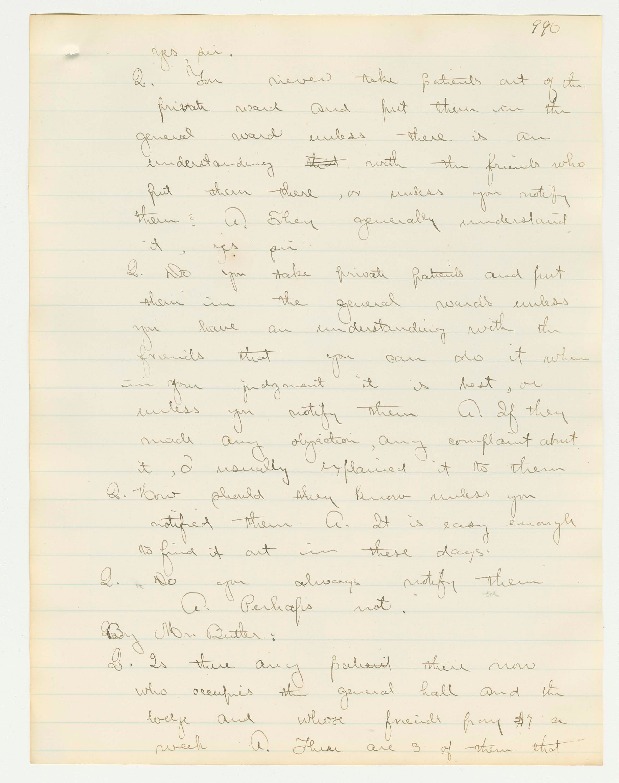 990
yes, sir.
Q. You never take patients out of the
private ward and put them in the
general ward unless there is an
understanding that with the friends who
put them there, or unless you notify
them? A. They generally understand
it, yes sir
Q. Do you take private patients and put
them in the general wards unless
you have an understanding with the
friends that you can do it when
in your judgment it is best, or
unless you notify them A. If they
made any objection, any complaint about
it, I usually explained it to them
Q. How should they know unless you
notified them A. It is easy enough
to find it out in these days.
Q. Do you always notify them
A. Perhaps not.
By Mr. Butler:
Q. Is there any patient there now
who occupies the general hall and the
lodge and whose friends pay $7 a
week A. There are 3 of them that